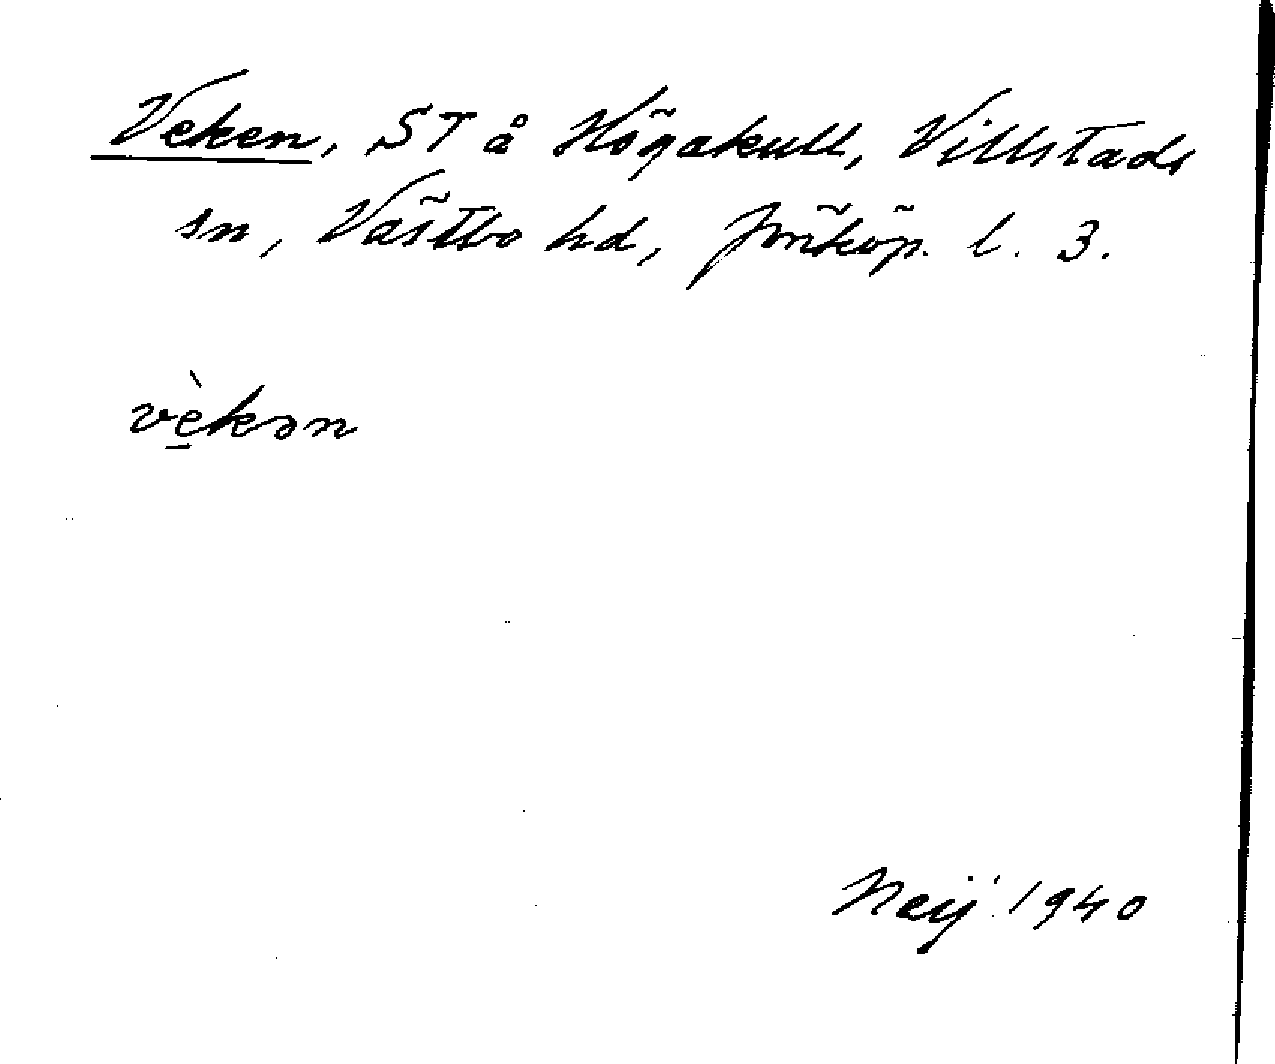 Veken, ST å Högakull, Villstads
sn, Västbo hd, Jönköp. l. 3.
vèkən
Neij 1940